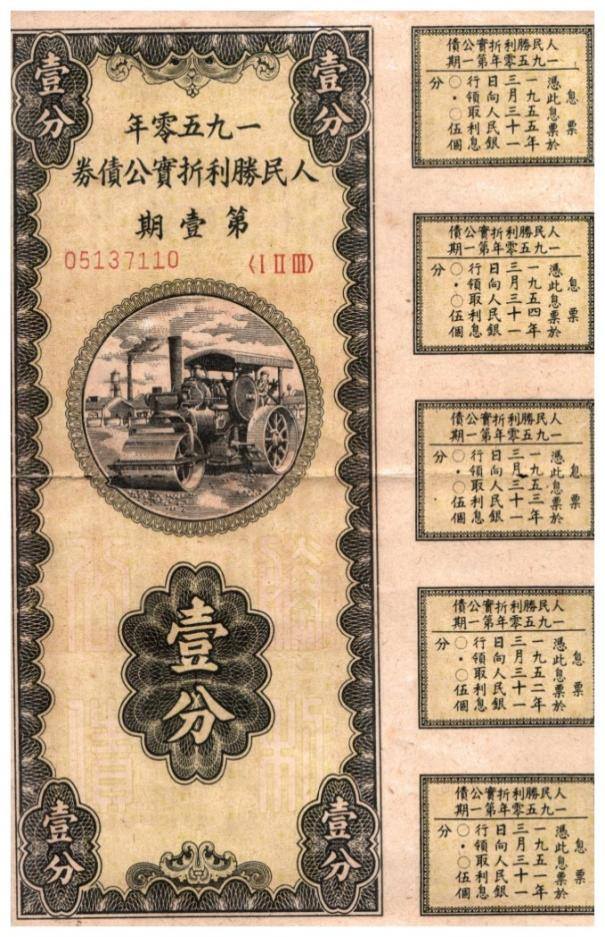 壹分
壹分
一九五零年
人民勝利折實公債券
第壹期
05137110
(I II III)
壹分
壹分
壹分
人民勝利折實公債
一九五零年第一期
息票
憑此息票於
一九五五年
三月三十一
日向人民銀
行領取利息
〇・〇伍個
分
人民勝利折實公債
一九五零年第一期
息票
憑此息票於
一九五四年
三月三十一
日向人民銀
行領取利息
〇・〇伍個
分
人民勝利折實公債
一九五零年第一期
息票
憑此息票於
一九五三年
三月三十一
日向人民銀
行領取利息
〇・〇伍個
分
人民勝利折實公債
一九五零年第一期
息票
憑此息票於
一九五二年
三月三十一
日向人民銀
行領取利息
〇・〇伍個
分
人民勝利折實公債
一九五零年第一期
息票
憑此息票於
一九五一年
三月三十一
日向人民銀
行領取利息
〇・〇伍個
分